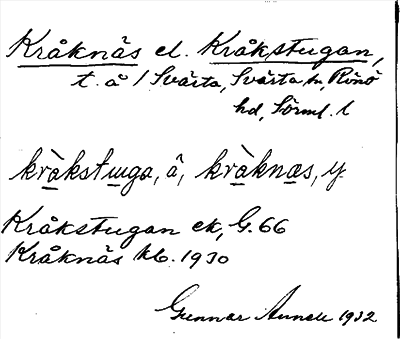 Kråknäs el. Kråkstugan,
t. å 1 Svärta, Svärta sn, Rönö
hd, Sörml. l
kràkstuga, å, kràknæs, y.
Kråkstugan ek, G. 66
Kråknäs kb. 1930
Gunnar Annell 1932